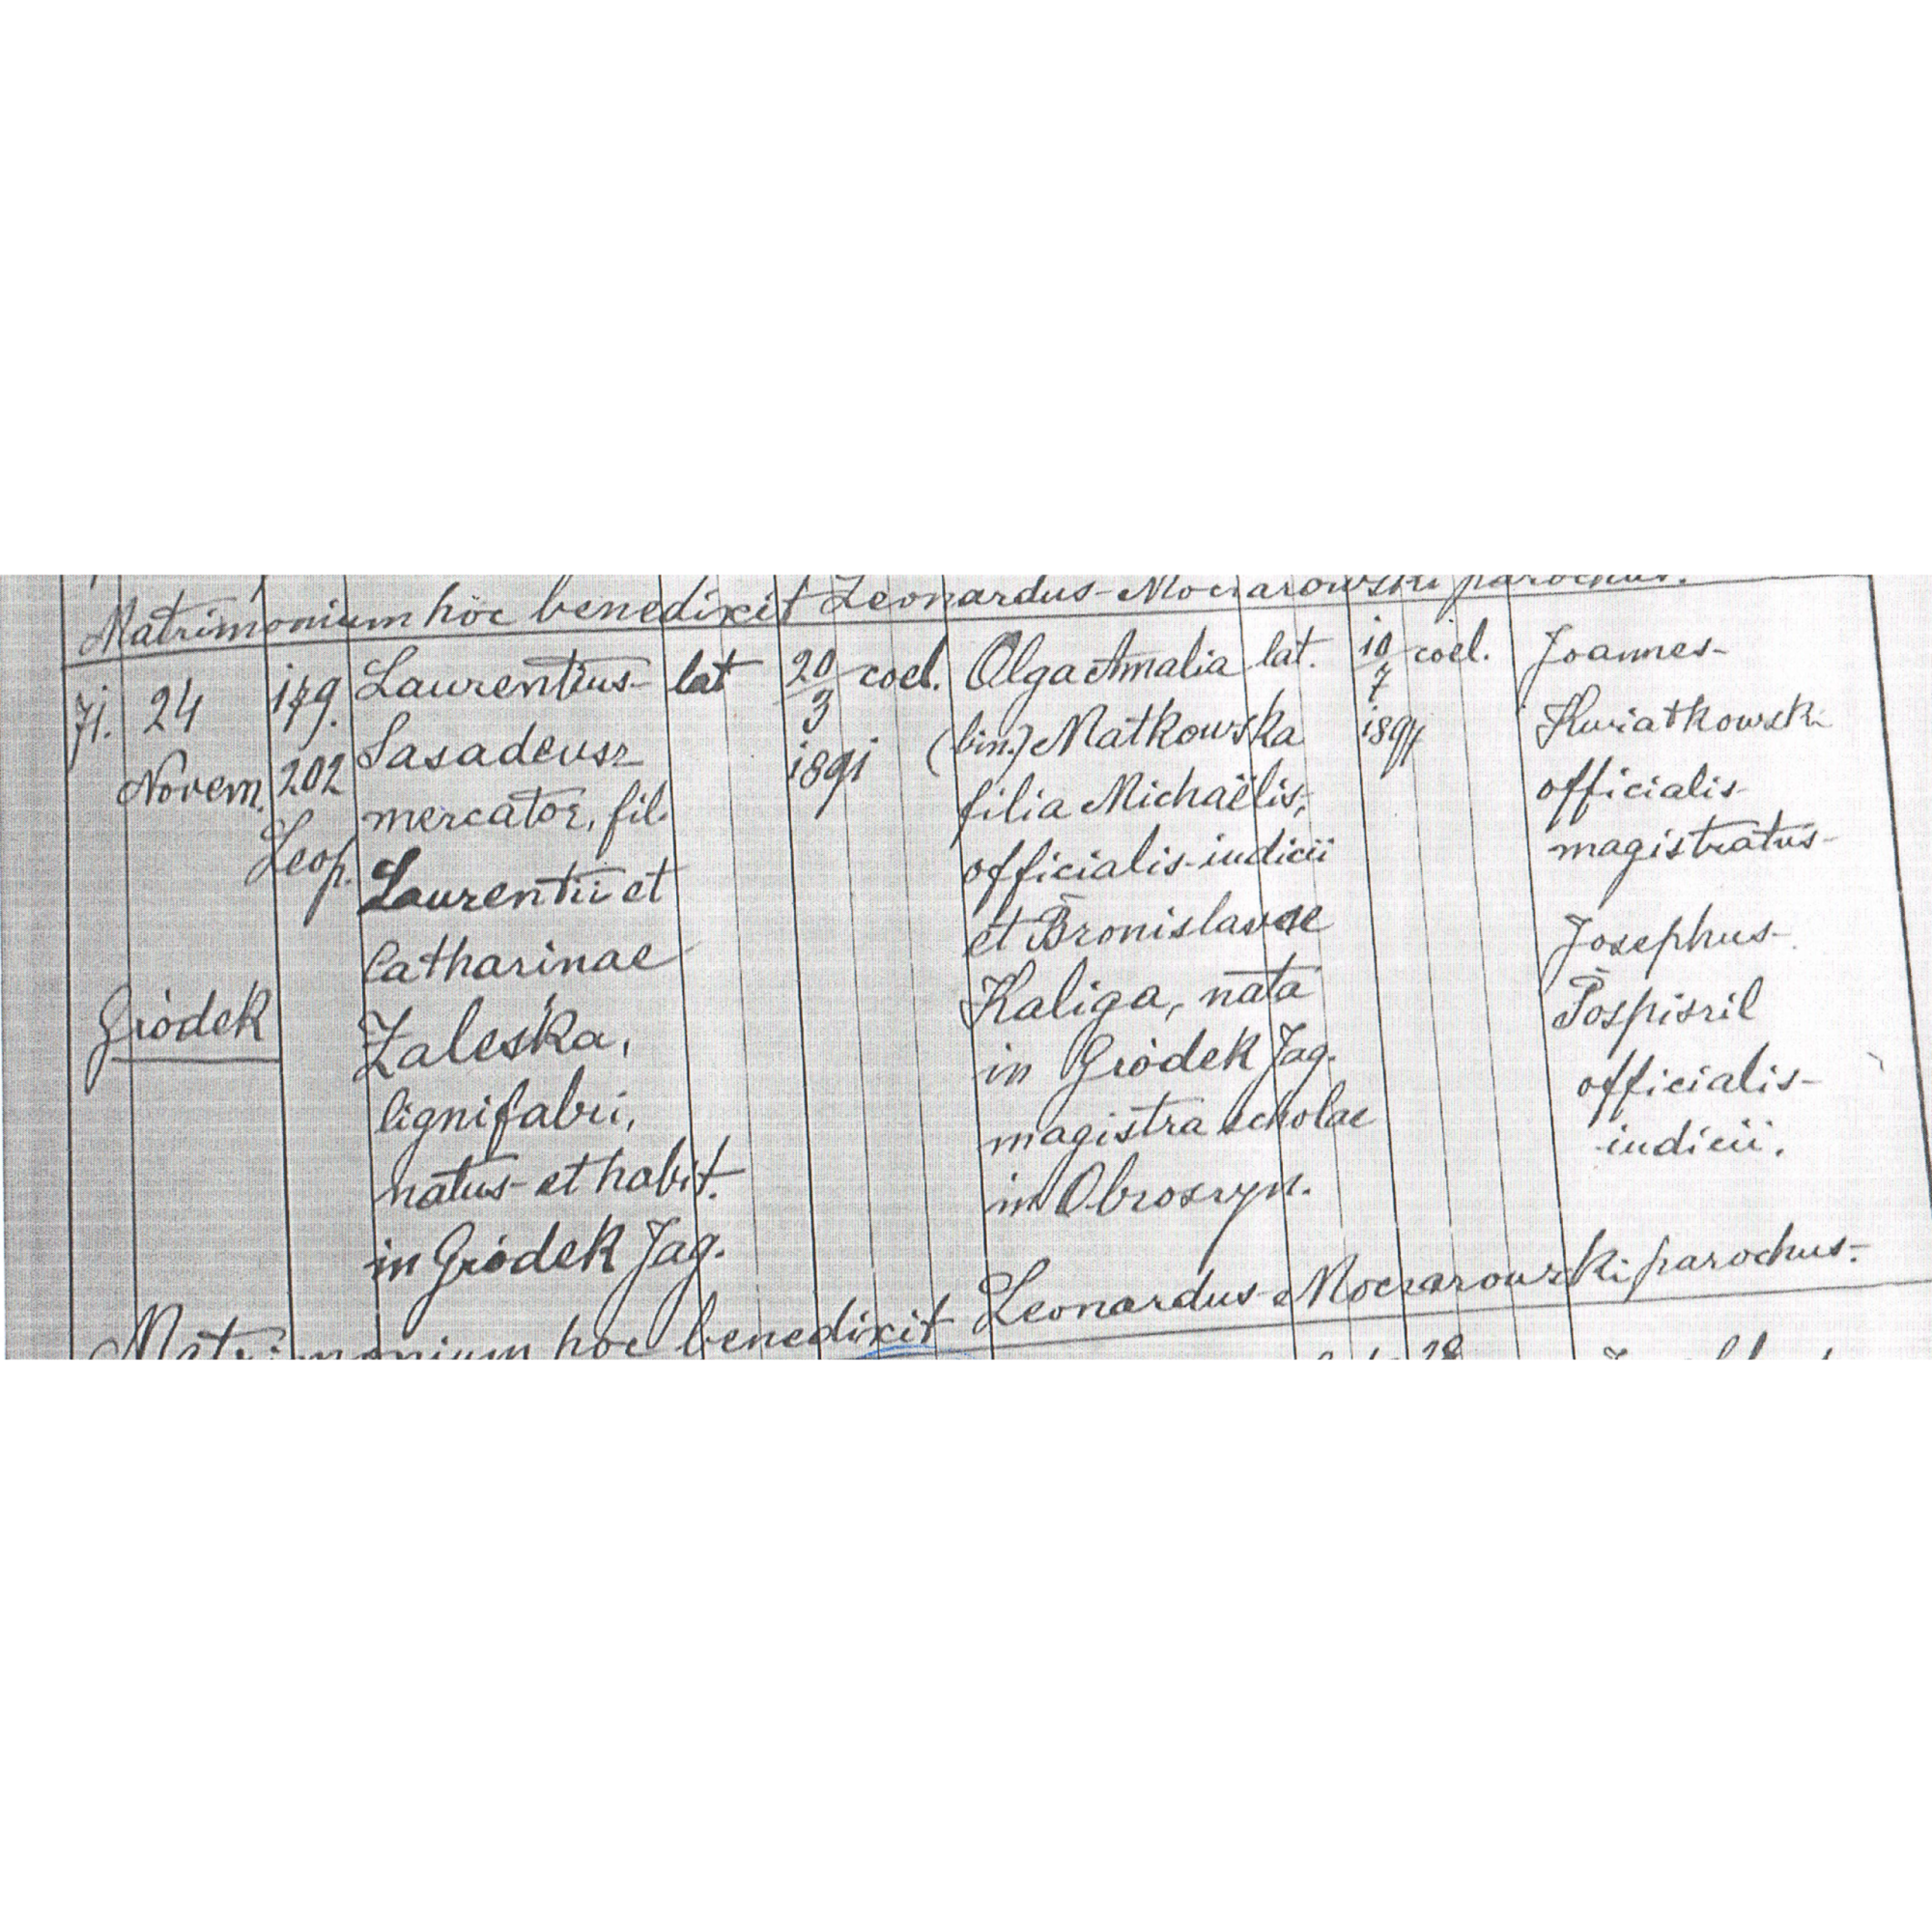 Matrimonium hoc benedixit Leonardus Moczarowski parochus.
71. 24 Novem. Gródek
179. 202 Leop.
Laurentius
Sasadeusz
mercator, fil.
Laurentii et
Catharinae
Zaleska,
lignifabri,
natus et habit.
in Gródek Jag.
lat
20
3
1891
coel.
Olga Amalia
(bin.) Matkowska
filia Michaëlis,
officialis iudicii
et Bronislavae
Kaliga, nata
in Gródek Jag.
magistra scholae
in Obroszyn.
lat.
10
7
coel.
Joannes
Kwiatkowski
officialis
magistratus
Josephus
Pospiszil
officialis
iudicii.
Matrimonium hoc benedixit Leonardus Moczarowski parochus.